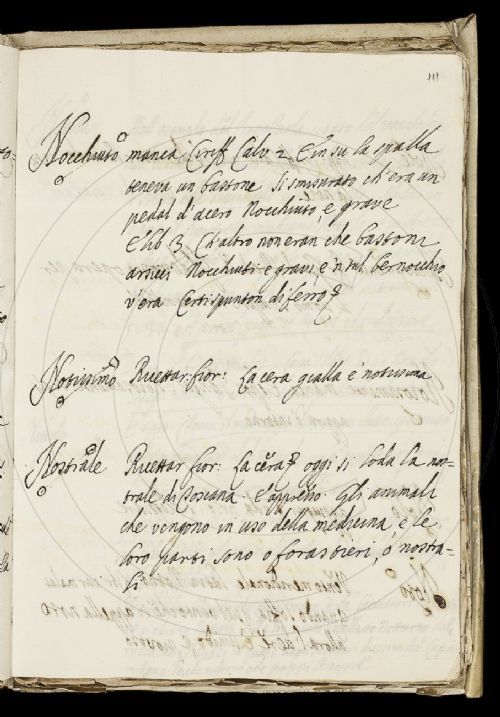 111
Nocchiuto manca Ciriff Calv. 2 E in su la spalla
teneva un bastone sì smisurato ch'era un
pedal d'acero Nocchiuto, e grave
E lib. 3. Ch'altro non eran che bastoni
arsicci Nocchiuti e gravi, e 'n sul bernocchio
v'era Certi spunton di ferro
Notissimo Ricettar: fior: La cera gialla è notissima
Nostrale Ricettar fior: La cera oggi si loda la nos-
trale di Toscana. E appresso Gli animali
che vengono in uso della medicina, e le
loro parti sono o forastieri, o nostra-
li